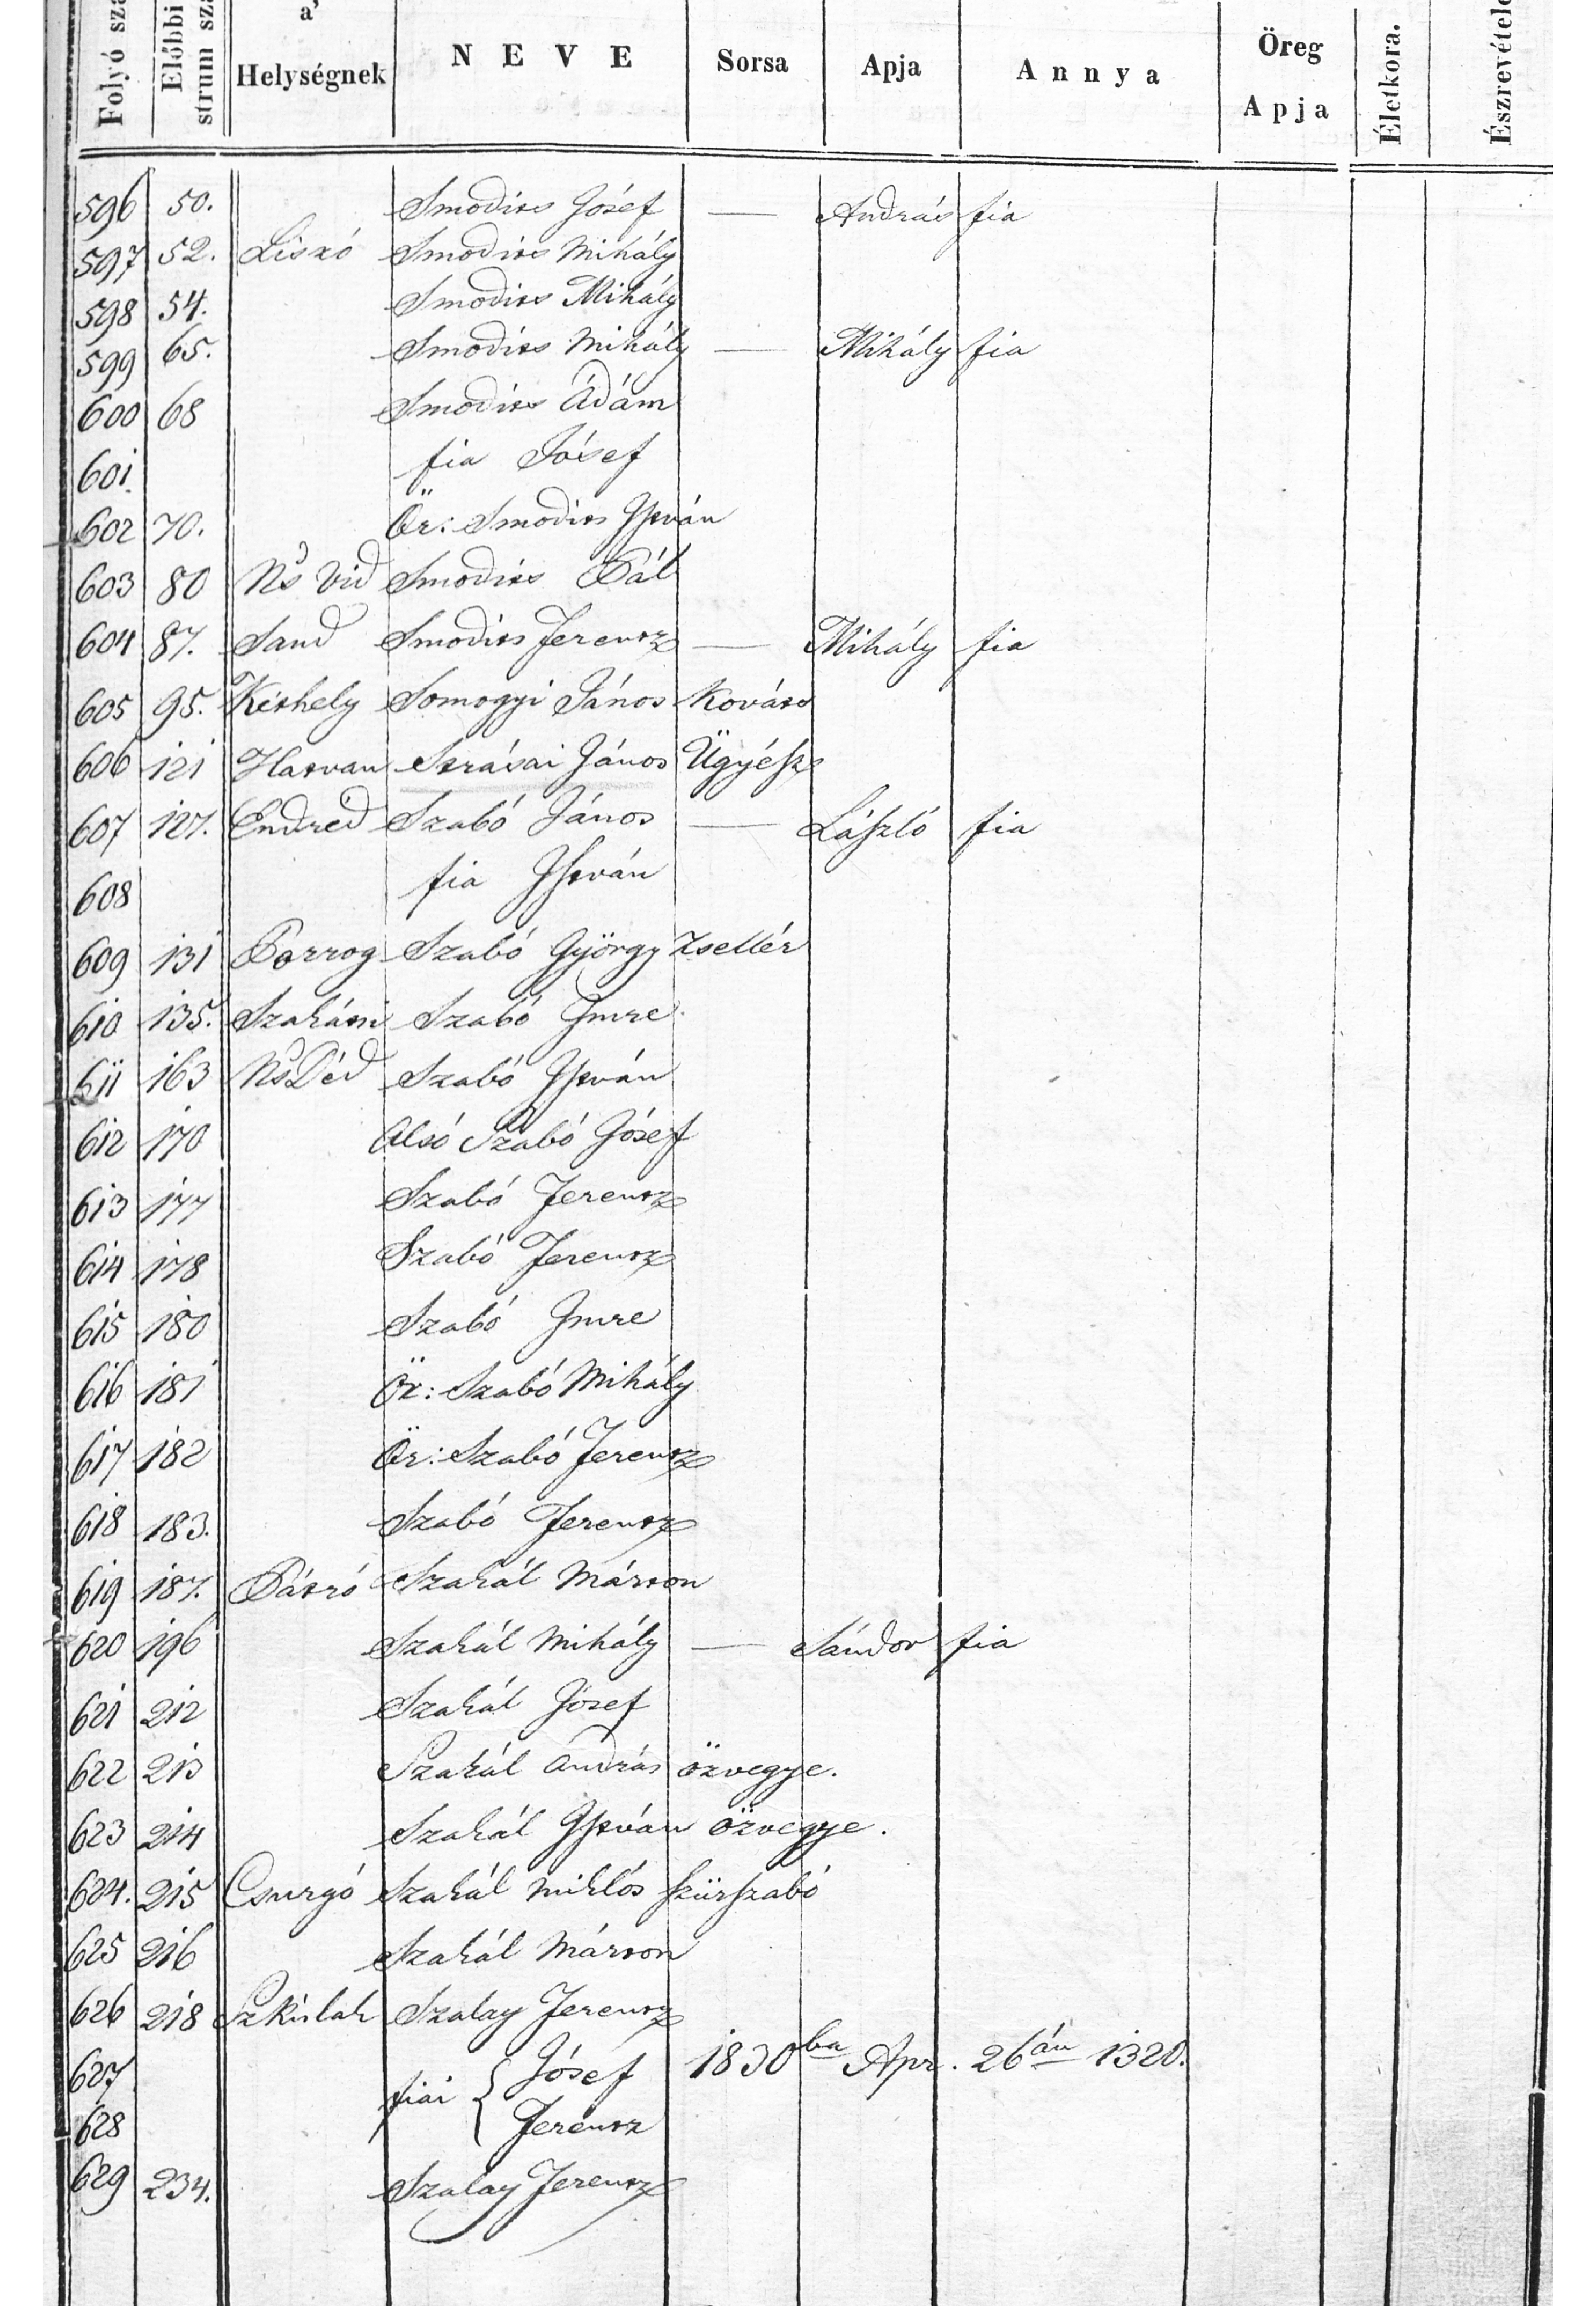 Folyó sza
Előbbi
strum szá
a'
Helységnek
N E V E
Sorsa
Apja
Annya
Öreg
Apja
Életkora.
Észrevétele
596 50. Smodics Jósef — András fia
597 52. Liszó Smodics Mihály
598 54. Smodics Mihály
599 65. Smodics Mihály — Mihály fia
600 68 Smodics Ádám
601 fia Jósef
602 70. Ör: Smodics István
603 80 Ns Vid Smodics Pál
604 87. Sand Smodics Ferencz — Mihály fia
605 95. Kéthely Somogyi János Kovács
606 121 Hatvan Szrásai János Ügyész
607 127. Endréd Szabó János — László fia
608 fia István
609 131 Porrog Szabó György Zsellér
610 135. Szakácsi Szabó Imre
611 163 Ns Déd Szabó István
612 170 Alsó Szabó Jósef
613 177 Szabó Ferencz
614 178 Szabó Ferencz
615 180 Szabó Imre
616 181 Ör: Szabó Mihály
617 182 Ör: Szabó Ferencz
618 183. Szabó Ferencz
619 187. Pátró Szakál Márton
620 196 Szakál Mihály — Sándor fia
621 212 Szakál Jósef
622 213 Szakál András özvegye.
623 214 Szakál István özvegye.
624. 215 Csurgó Szakál Miklós szürszabó
625 216 Szakál Márton
626 218 Szkislak Szalay Ferencz
627 fiai { Jósef 1830ba Apr. 26án 1320.
628 Ferencz
629 234. Szalay Ferencz